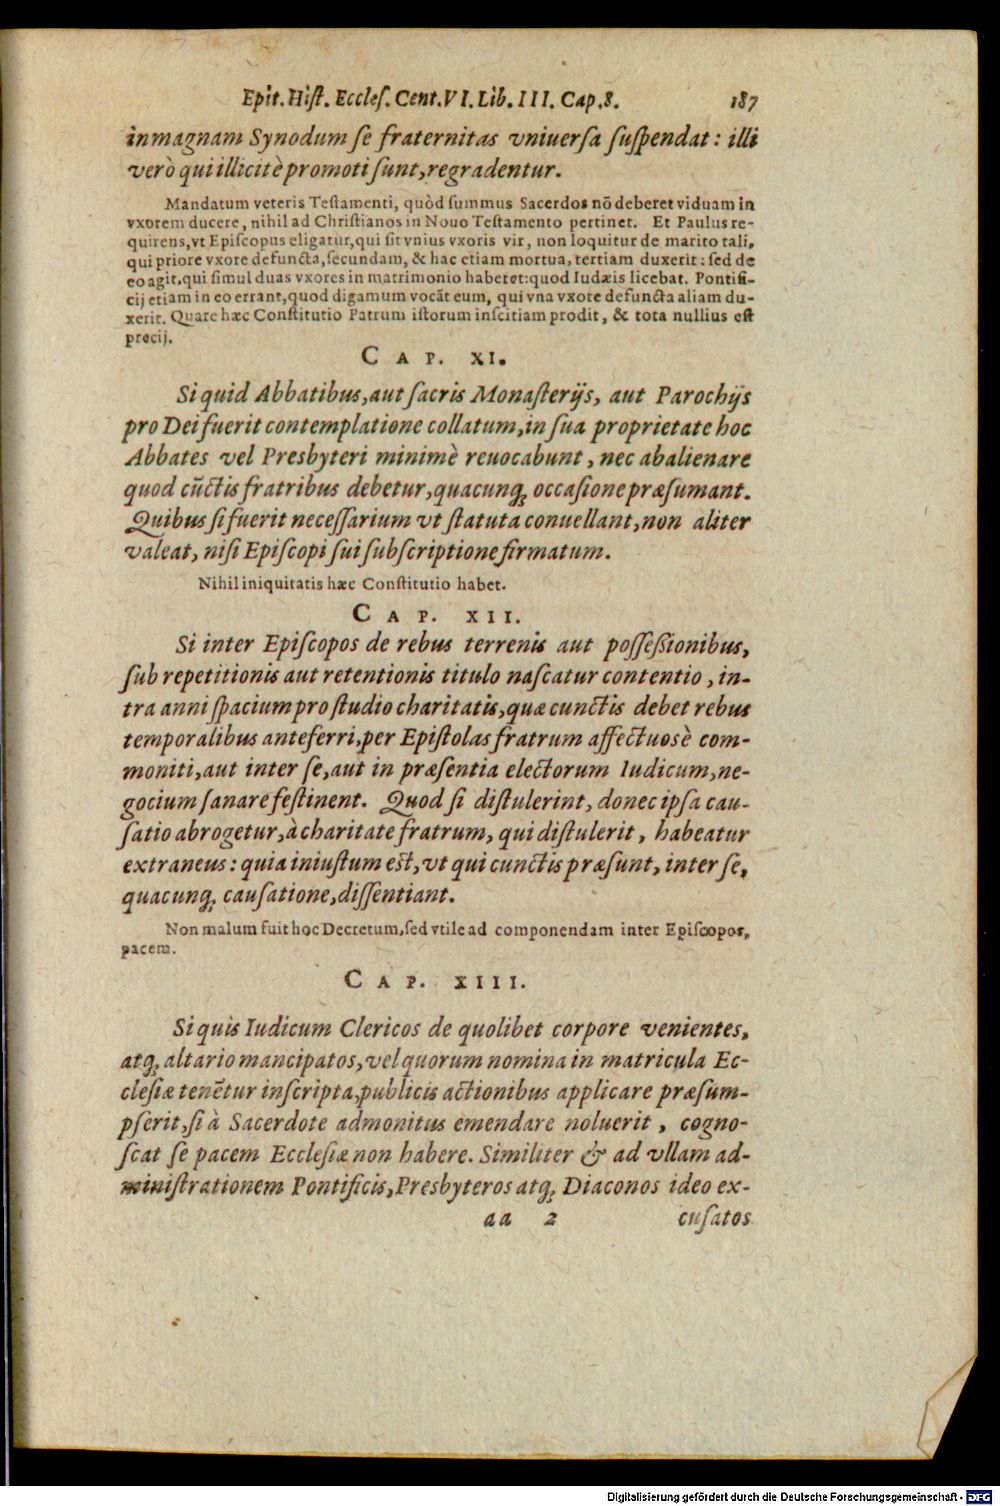 Epit. Hiſt. Eccleſ. Cent. VI. Lib. III. Cap. 8. 187
in magnam Synodum ſe fraternitas vniuerſa ſuſpendat: illi
verò qui illicitè promoti ſunt, regradentur.
Mandatum veteris Teſtamenti, quòd ſummus Sacerdos nō deberet viduam in
vxorem ducere, nihil ad Chriſtianos in Nouo Teſtamento pertinet. Et Paulus re-
quirens, vt Epiſcopus eligatur, qui ſit vnius vxoris vir, non loquitur de marito tali,
qui priore vxore defuncta, ſecundam, & hac etiam mortua, tertiam duxerit: ſed de
eo agit, qui ſimul duas vxores in matrimonio haberet: quod Iudæis licebat. Pontifi-
cij etiam in eo errant, quod digamum vocāt eum, qui vna vxore defuncta aliam du-
xerit. Quare hæc Conſtitutio Patrum iſtorum inſcitiam prodit, & tota nullius eſt
precij.
CAP. XI.
Si quid Abbatibus, aut ſacris Monaſterijs, aut Parochijs
pro Dei fuerit contemplatione collatum, in ſua proprietate hoc
Abbates vel Presbyteri minimè reuocabunt, nec abalienare
quod cūctis fratribus debetur, quacunq; occaſione præſumant.
Quibus ſi fuerit neceſſarium vt ſtatuta conuellant, non aliter
valeat, niſi Epiſcopi ſui ſubſcriptione firmatum.
Nihil iniquitatis hæc Conſtitutio habet.
CAP. XII.
Si inter Epiſcopos de rebus terrenis aut poſſeſsionibus,
ſub repetitionis aut retentionis titulo naſcatur contentio, in-
tra anni ſpacium pro ſtudio charitatis, quæ cunctis debet rebus
temporalibus anteferri, per Epiſtolas fratrum affectuosè com-
moniti, aut inter ſe, aut in præſentia electorum Iudicum, ne-
gocium ſanare feſtinent. Quod ſi diſtulerint, donec ipſa cau-
ſatio abrogetur, à charitate fratrum, qui diſtulerit, habeatur
extraneus: quia iniuſtum eſt, vt qui cunctis præſunt, inter ſe,
quacunq; cauſatione, diſſentiant.
Non malum fuit hoc Decretum, ſed vtile ad componendam inter Epiſcopos,
pacem.
CAP. XIII.
Si quis Iudicum Clericos de quolibet corpore venientes,
atq; altario mancipatos, vel quorum nomina in matricula Ec-
cleſiæ tenētur inſcripta, publicis actionibus applicare præſum-
pſerit, ſi à Sacerdote admonitus emendare noluerit, cogno-
ſcat ſe pacem Eccleſiæ non habere. Similiter & ad vllam ad-
miniſtrationem Pontificis, Presbyteros atq; Diaconos ideo ex-
aa 2 cuſatos
Digitalisierung gefördert durch die Deutsche Forschungsgemeinschaft - DFG